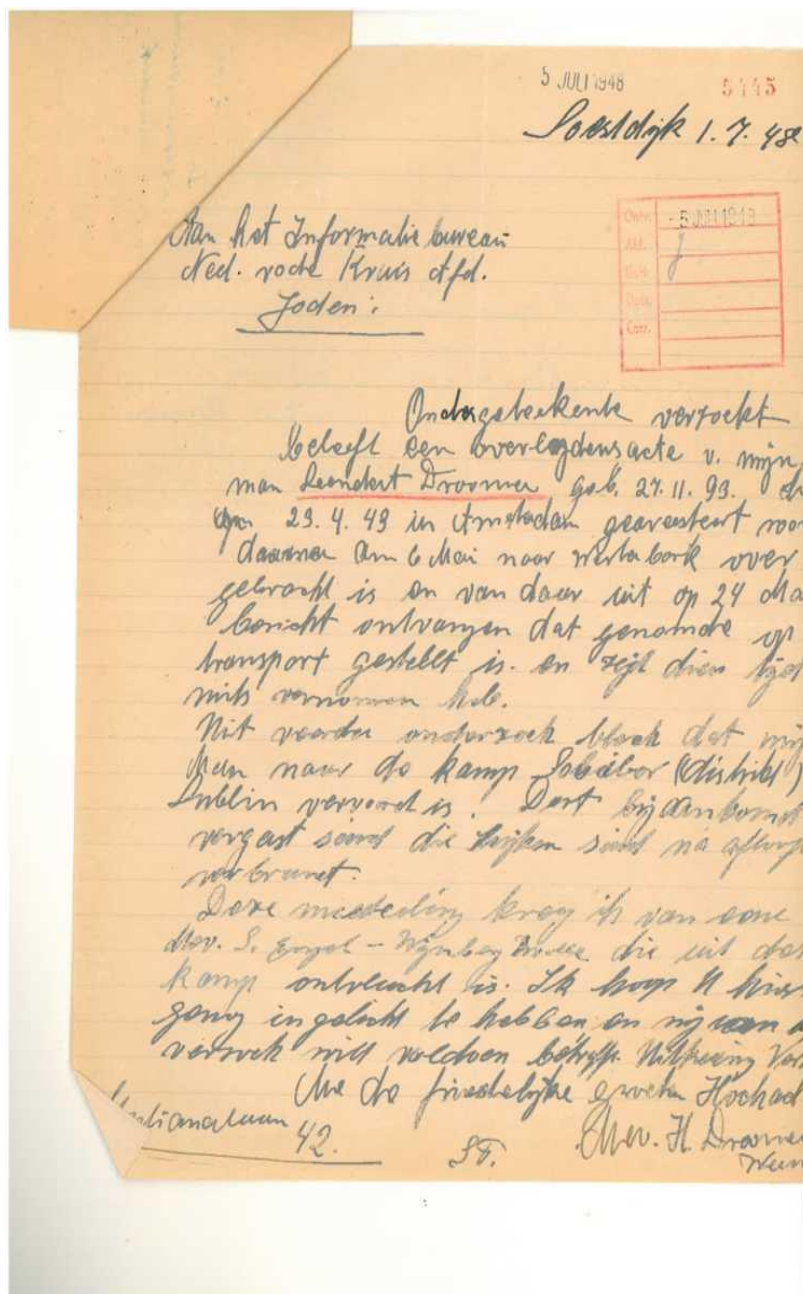 5 JULI 1948 5445
Soestdijk 1.7.48
Aan het Informatie bureau
Ned. rode Kruis Afd.
Joden:
Ontv. -5 JULI 1948
Afd. J
Corr.
Ondergeteekente verzoekt
beleeft een overlydensacte v. mijn
man Leendert Droomer geb. 27.11.93.
op 23.4.43 in Amsterdam gearresteert
daarna am 6 Mai naar Westerbork over
gebracht is en van daar uit op 24
bericht ontvangen dat genoemde op
transport gestellt is. en zeit dien
niks vernomen heb.
Uit verder onderzoek bleek dat
Man naar de kamp Sobibor (district)
Lublin vervoerd is. Dort bij aankomst
vergast sind die lijken sind na
verbrant.
Deze mededeling kreg ik van eene
Mev. S. Engel - die uit
kamp ontvlucht is. Ik hoop U
genug ingelicht te hebben en
versoek will voldoen
Me de friedelijke groeten Hochad
42. ST. Mev. H. Droomer